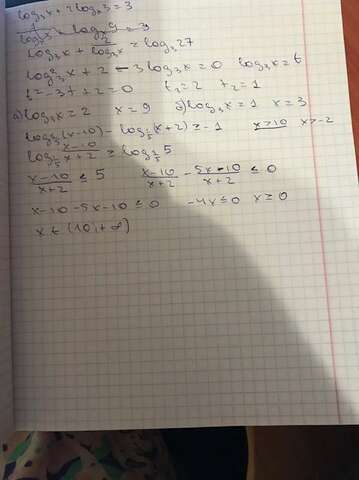 log₃x + 2logₓ3 = 3
log₃x + logₓ9 = log₃27
log₃²x + 2 - 3log₃x = 0 log₃x = t
t² - 3t + 2 = 0 t₁ = 2 t₂ = 1
а) log₃x = 2 x = 9 б) log₃x = 1 x = 3
log_{1/5}(x-10) - log_{1/5}(x+2) ≥ -1 x>10 x>-2
log_{1/5} (x-10)/(x+2) ≥ log_{1/5} 5
(x-10)/(x+2) ≤ 5 (x-10)/(x+2) - (5x+10)/(x+2) ≤ 0
x-10-5x-10 ≤ 0 -4x ≤ 0 x ≥ 0
x ∈ (10; +∞)